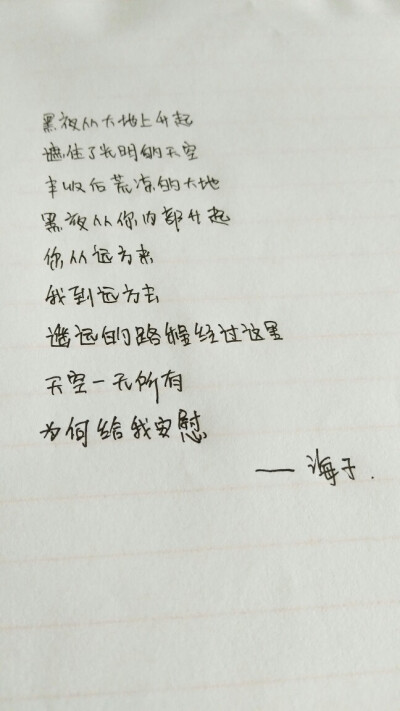 黑夜从大地上升起
遮住了光明的天空
丰收后荒凉的大地
黑夜从你内部升起
你从远方来
我到远方去
遥远的路程经过这里
天空一无所有
为何给我安慰
——海子.